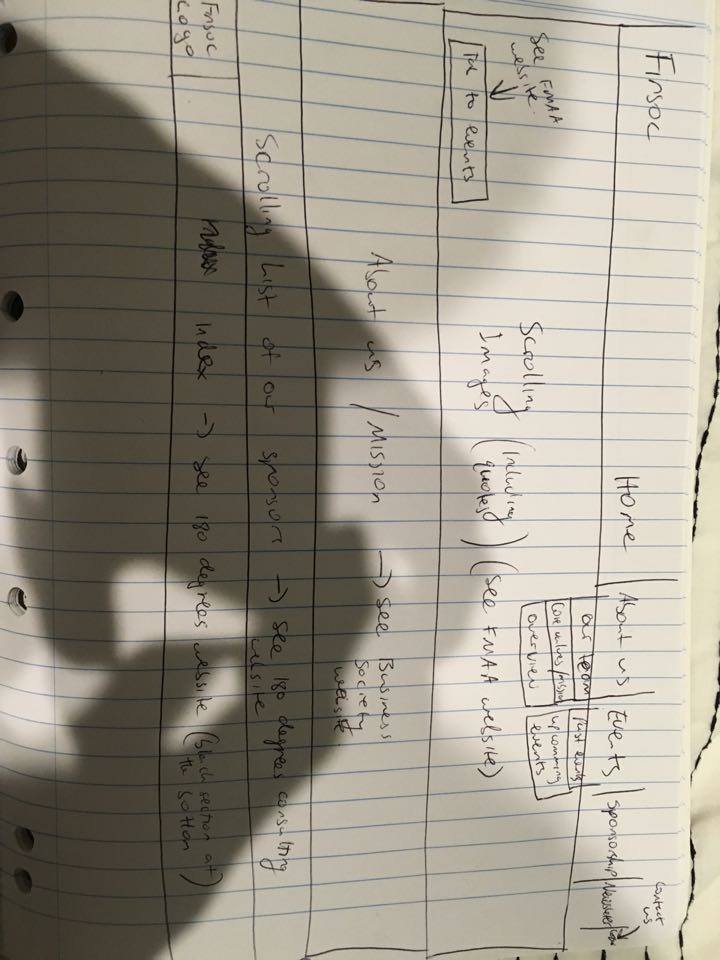 Finsoc
Home | About us | Events | Sponsorship | Newsletter |
Contact
us
our team
core values/mission
overview
past events
upcomming
events
See FMAA
website
Tix to events
Scrolling
Images (including
quotes) (see FMAA website)
About us / Mission → see Business
Society
website
Scrolling list of our sponsors → see 180 degrees consulting
website
Finsoc
Logo
Index → see 180 degrees website (black section at
the bottom)